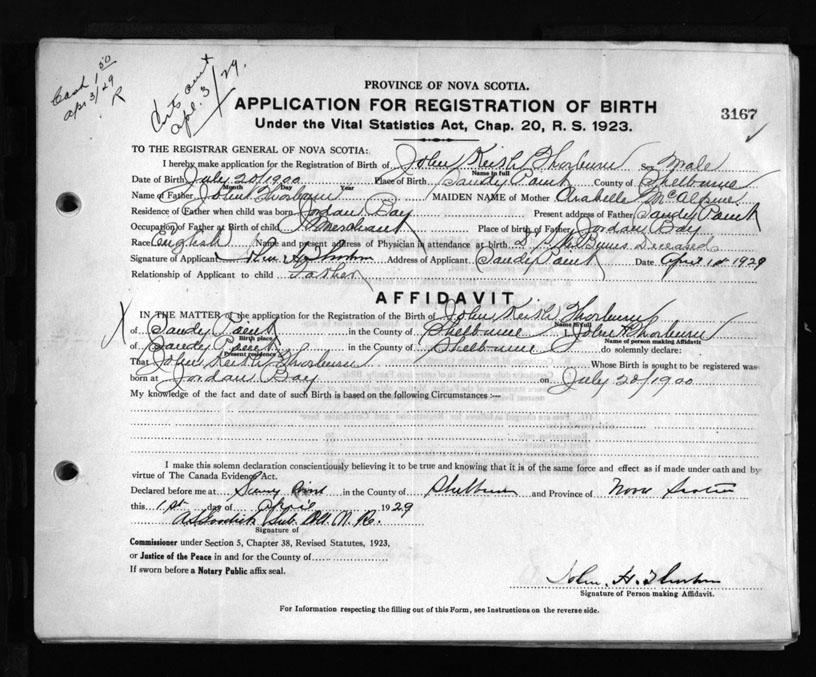 Cash 1.50
Apr 3/29
R
Apl. 3/29.
PROVINCE OF NOVA SCOTIA.
APPLICATION FOR REGISTRATION OF BIRTH
3167
Under the Vital Statistics Act, Chap. 20, R. S. 1923.
TO THE REGISTRAR GENERAL OF NOVA SCOTIA:
I hereby make application for the Registration of Birth of John Keith Thorburn Sex Male
Name in full
Date of Birth July 20/1900 Place of Birth Sandy Point County of Shelburne
Month Day Year
Name of Father John Thorburn MAIDEN NAME of Mother Arabella McAlpine
Residence of Father when child was born Jordan Bay Present address of Father Sandy Point
Occupation of Father at Birth of child Merchant Place of birth of Father Jordan Bay
Race English Name and present address of Physician in attendance at birth Deceased
Signature of Applicant John H. Thorburn Address of Applicant Sandy Point Date April 1st 1929
Relationship of Applicant to child Father
AFFIDAVIT
IN THE MATTER of the application for the Registration of the Birth of John Keith Thorburn
Name in full
X of Sandy Point in the County of Shelburne I, John H Thorburn
Birth place Name of person making Affidavit
of Sandy Point in the County of Shelburne do solemnly declare:
Present residence
That John Keith Thorburn Whose Birth is sought to be registered was
born at Jordan Bay on July 20/1900
My knowledge of the fact and date of such Birth is based on the following Circumstances :—
I make this solemn declaration conscientiously believing it to be true and knowing that it is of the same force and effect as if made under oath and by
virtue of The Canada Evidence Act.
Declared before me at Sandy Point in the County of Shelburne and Province of Nova Scotia
this 1st day of April 1929
Signature of
Commissioner under Section 5, Chapter 38, Revised Statutes, 1923,
or Justice of the Peace in and for the County of
If sworn before a Notary Public affix seal.
John H. Thorburn
Signature of Person making Affidavit.
For Information respecting the filling out of this Form, see Instructions on the reverse side.